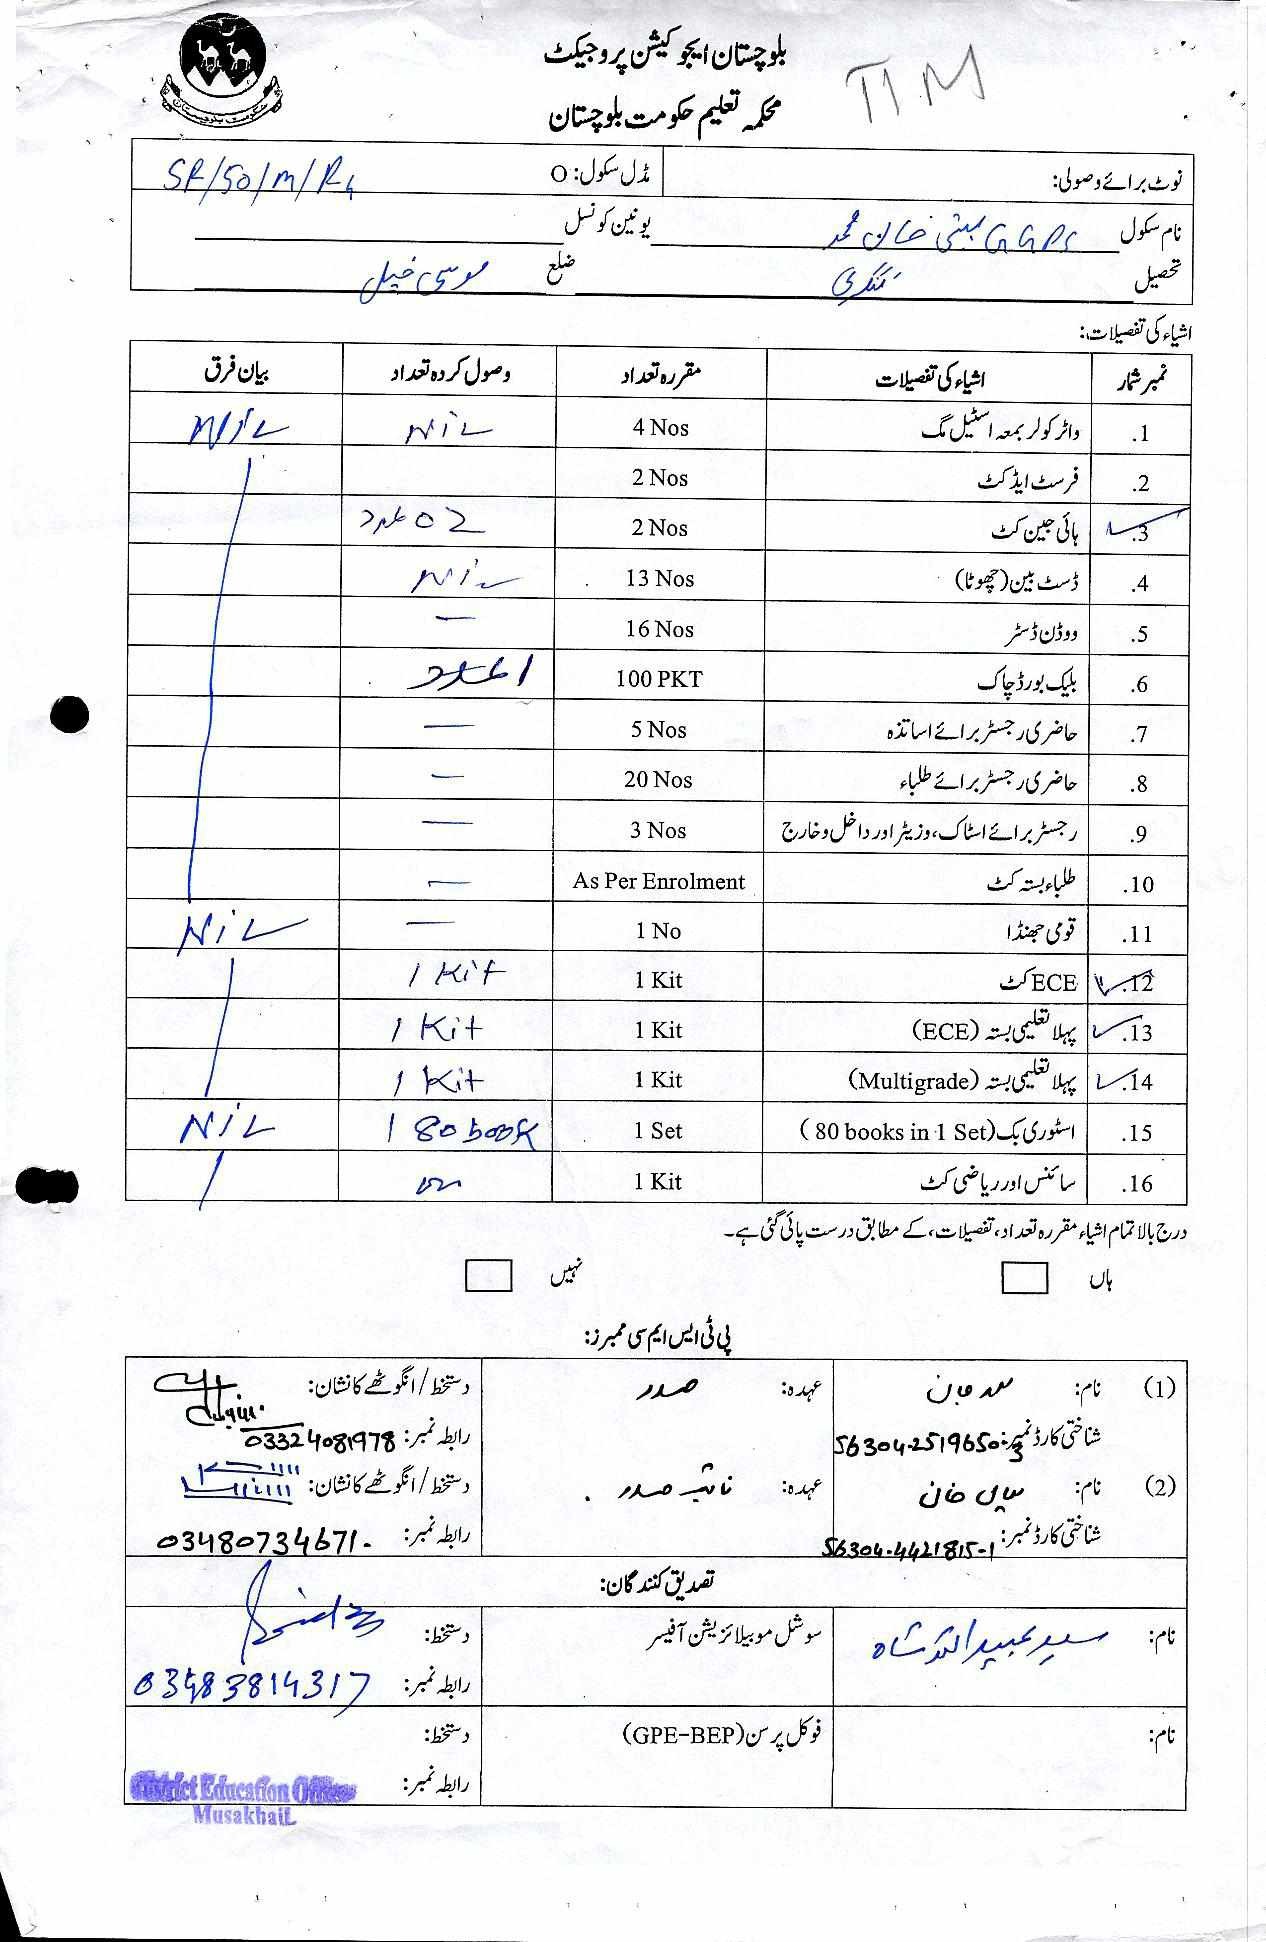 بلوچستان ایجوکیشن پروجیکٹ
TTM
محکمہ تعلیم حکومت بلوچستان
حکومت بلوچستان
نوٹ برائے وصولی: مڈل سکول: O SR/50/M/R4
نام سکول GGPS بستی خان محمد یونین کونسل
تحصیل کنگری ضلع موسی خیل
اشیاء کی تفصیلات:
نمبر شمار اشیاء کی تفصیلات مقررہ تعداد وصول کردہ تعداد بیان فرق
1. واٹر کولر بمعہ اسٹیل مگ 4 Nos NiL NiL
2. فرسٹ ایڈ کٹ 2 Nos
3. ہائی جین کٹ 2 Nos 02 عدد
4. ڈسٹ بین (چھوٹا) 13 Nos NiL
5. ووڈن ڈسٹر 16 Nos —
6. بلیک بورڈ چاک 100 PKT 1 عدد
7. حاضری رجسٹر برائے اساتذہ 5 Nos —
8. حاضری رجسٹر برائے طلباء 20 Nos —
9. رجسٹر برائے اسٹاک، وزیٹر اور داخل و خارج 3 Nos —
10. طلباء بستہ کٹ As Per Enrolment —
11. قومی جھنڈا 1 No — NiL
12. ECE کٹ 1 Kit 1 Kit
13. پہلا تعلیمی بستہ (ECE) 1 Kit 1 Kit
14. پہلا تعلیمی بستہ (Multigrade) 1 Kit 1 Kit
15. اسٹوری بک (80 books in 1 Set) 1 Set 1 80 book NiL
16. سائنس اور ریاضی کٹ 1 Kit
درج بالا تمام اشیاء مقررہ تعداد، تفصیلات، کے مطابق درست پائی گئی ہے۔
ہاں نہیں
پی ٹی ایس ایم سی ممبرز:
(1) نام: جان عہدہ: صدر دستخط/انگوٹھے کا نشان:
شناختی کارڈ نمبر: 56304-2519650-3 رابطہ نمبر: 03324081978
(2) نام: خان عہدہ: نائب صدر . دستخط/انگوٹھے کا نشان:
شناختی کارڈ نمبر: 56304-4421815-1 رابطہ نمبر: 03480734671.
تصدیق کنندگان:
نام: سید عبید اللہ شاہ سوشل موبیلائزیشن آفیسر دستخط:
رابطہ نمبر: 03483814317
نام: فوکل پرسن (GPE-BEP) دستخط:
رابطہ نمبر:
District Education Officer
Musakhail